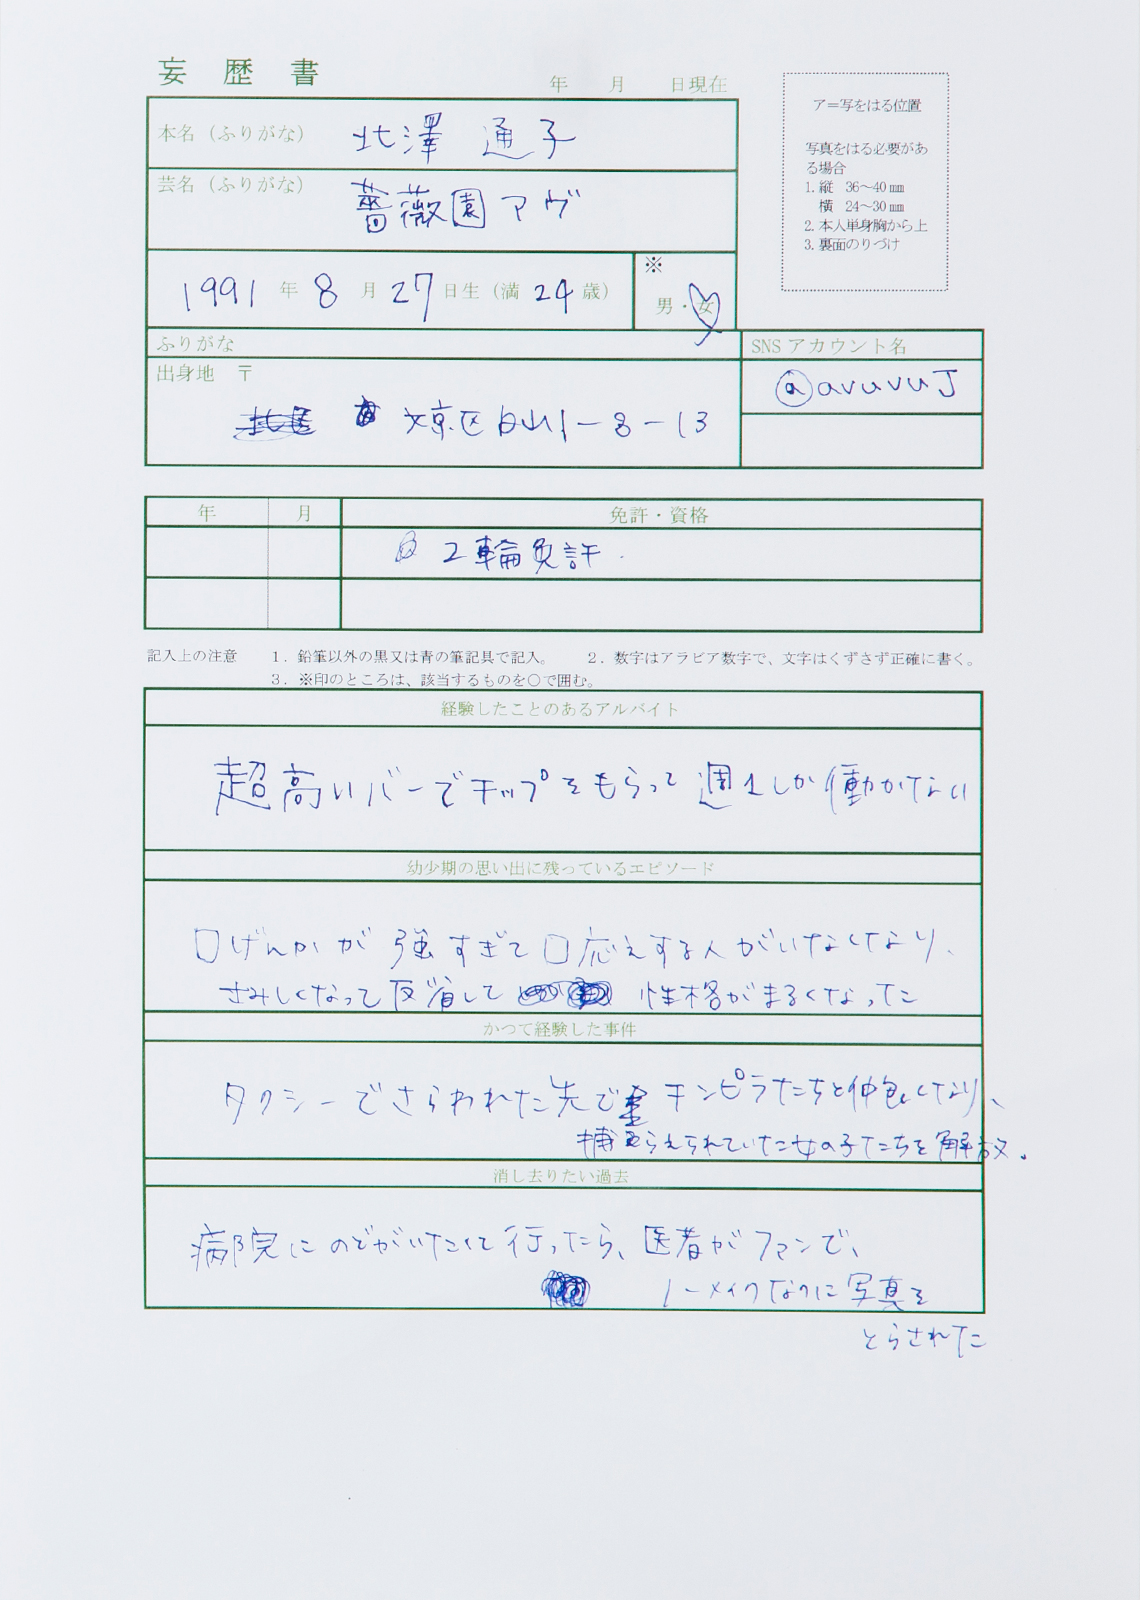 妄歴書
年 月 日現在
ア=写をはる位置
写真をはる必要があ
る場合
1. 縦 36〜40㎜
横 24〜30㎜
2. 本人単身胸から上
3. 裏面のりづけ
本名（ふりがな） 北澤 通子
芸名（ふりがな） 薔薇園アヴ
1991年 8月 27日生（満 24歳）
※
男・女
ふりがな
SNS アカウント名
出身地 〒
@avuvuJ
文京区白山1-8-13
年 月 免許・資格
2輪免許.
記入上の注意 1．鉛筆以外の黒又は青の筆記具で記入。 2．数字はアラビア数字で、文字はくずさず正確に書く。
3．※印のところは、該当するものを○で囲む。
経験したことのあるアルバイト
超高いバーでチップをもらって週1しか働かない
幼少期の思い出に残っているエピソード
口げんかが強すぎて口応えする人がいなくなり、
さみしくなって反省して 性格がまるくなった
かつて経験した事件
タクシーでさらわれた先で チンピラたちと仲良くなり、
捕らえられていた女の子たちを解放。
消し去りたい過去
病院にのどがいたくて行ったら、医者がファンで、
ノーメイクなのに写真を
とらされた